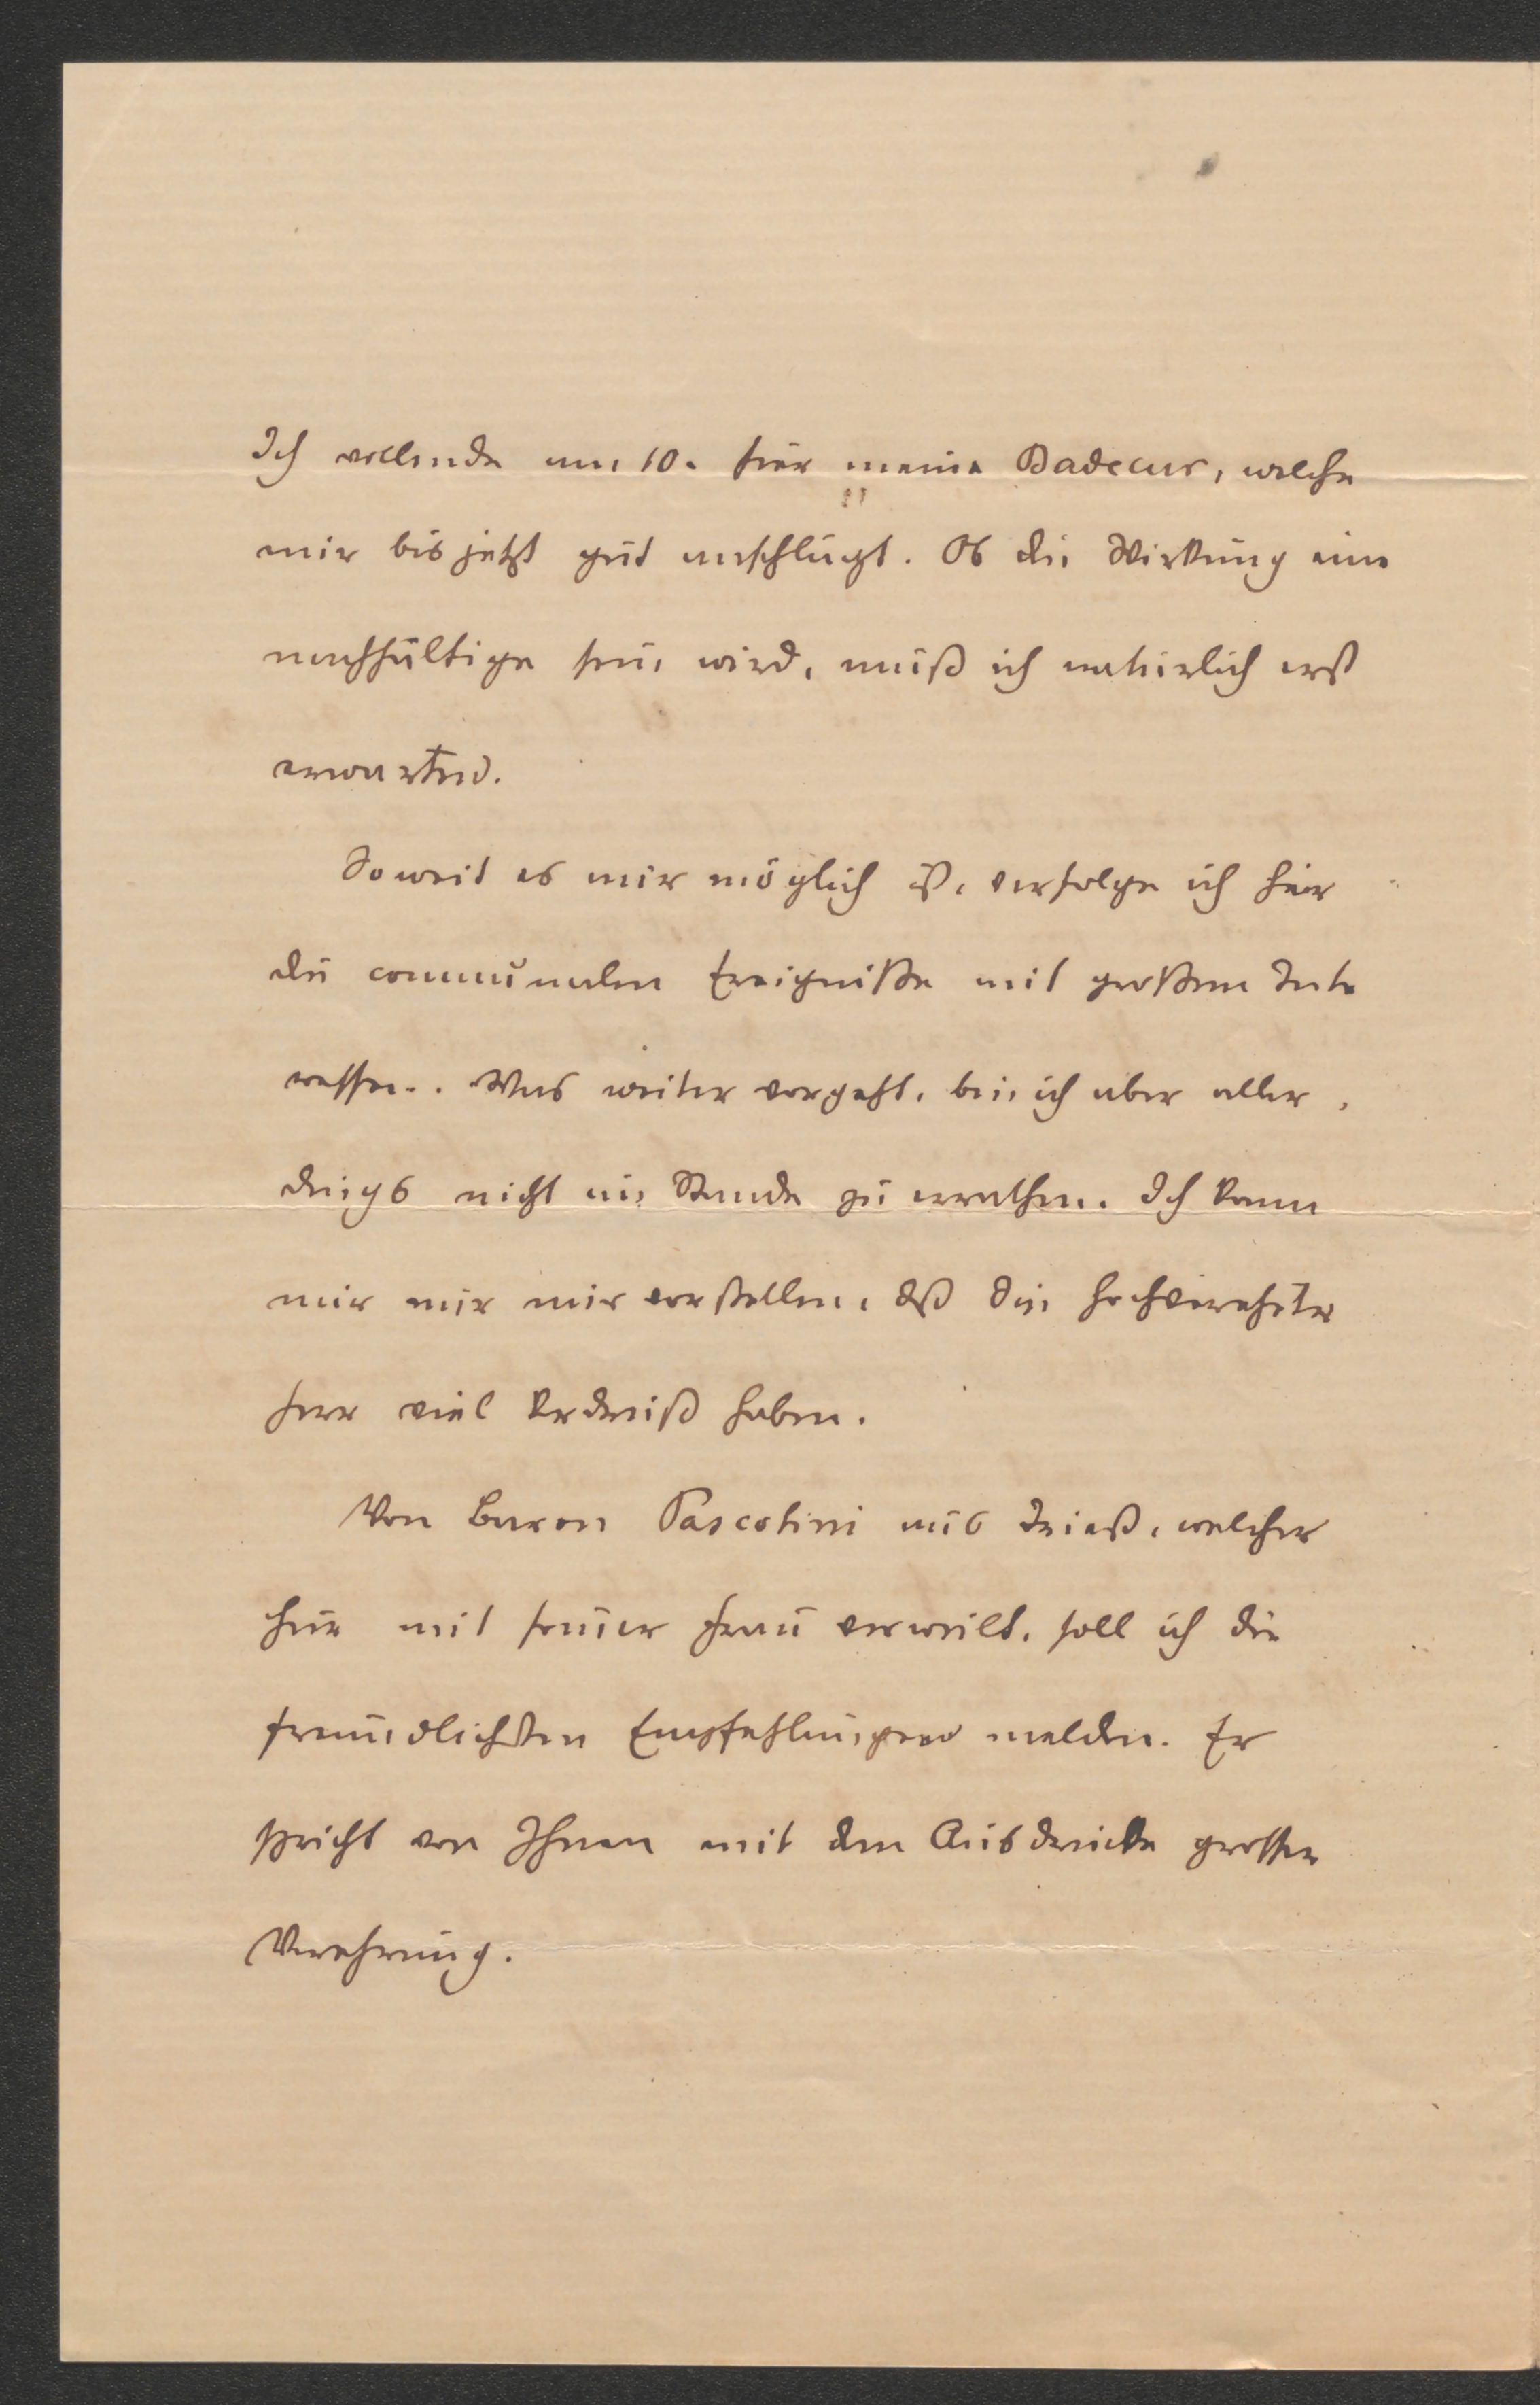 Ich vollende am 10. hier meine Badecur, welche
mir bis jetzt gut anschlägt. Ob die Wirkung eine
nachhältige sein wird, muß ich natürlich erst
erwarten.
Soweit es mir möglich ist, verfolge ich hier
die communalen Ereigniße mit großem Inte
ressen. Was weiter vorgeht, bin ich aber aller,
dings nicht im Stande zu errathen. Ich kann
mir nur vorstellen, dß Sie hochverehrter
Herr viel Verdruß haben.
Von Baron Pascotini aus Triest, welcher
hier mit seiner Frau verweilt, soll ich die
freundlichsten Empfehlungen melden. Er
spricht von Ihnen mit dem Ausdrucke grosser
Verehrung.